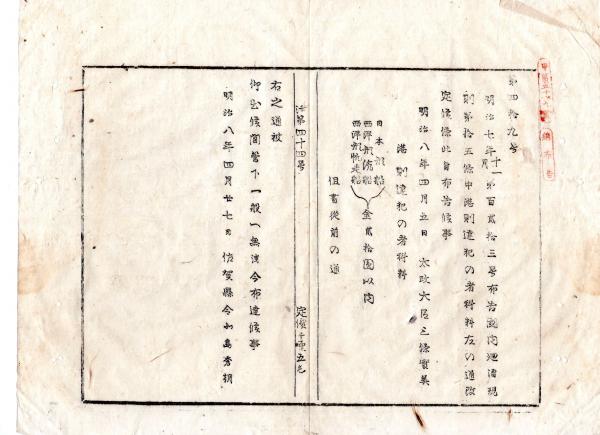 第四拾九号
明治七年十一月第百貳拾三号布告國内廻漕規
則第拾五條中港則違犯の者科料左の通改
定候條此旨布告候事
明治八年四月五日　太政大臣三條實美
港則違犯の者科料
日本形船
西洋形滊船
西洋形帆走船
金貳拾圓以内
但書從前の通
第四十四号
定價壬五毛
右之通被
仰出候間管下一般へ無洩令布達候事
明治八年四月廿七日　佐賀縣令北島秀朝